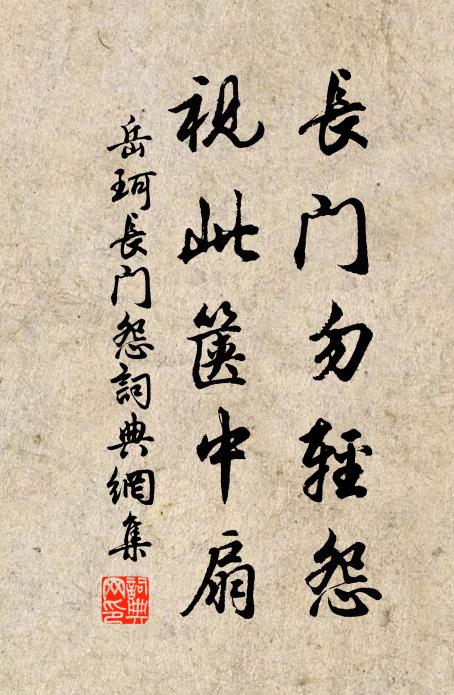 長门勿輕怨
視此篋中扇
岳珂長门怨詞典網集
詞典网印